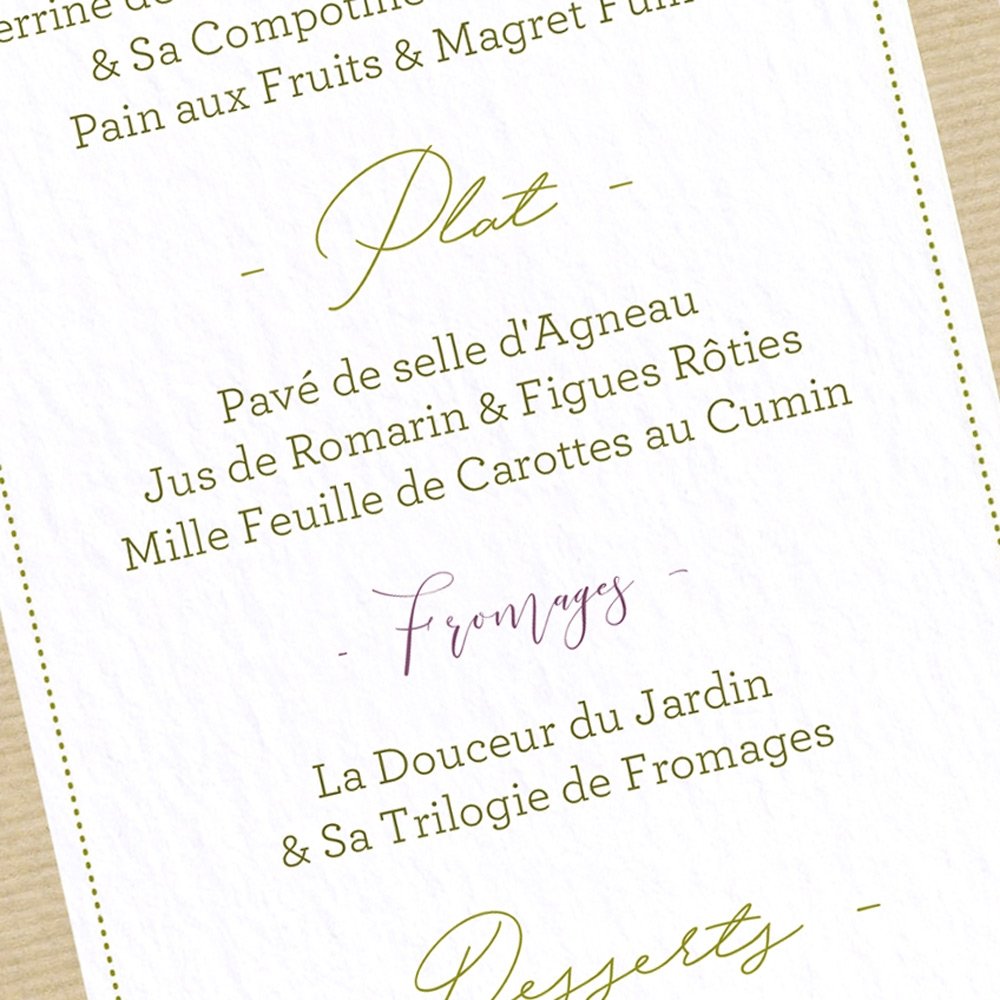 & Sa
Pain aux Fruits & Magret
- Plat -
Pavé de selle d'Agneau
Jus de Romarin & Figues Rôties
Mille Feuille de Carottes au Cumin
- Fromages -
La Douceur du Jardin
& Sa Trilogie de Fromages
Desserts -